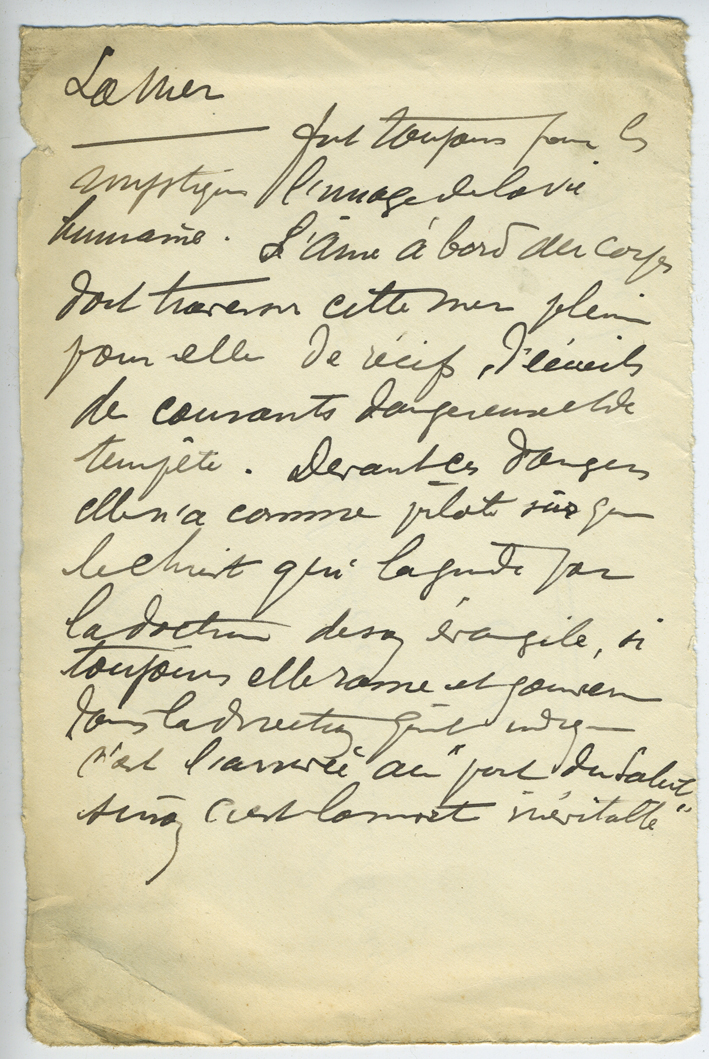 La Mer
fut toujours pour les
mystiques l'image de la vie
humaine. L'âme à bord du corps
doit traverser cette mer pleine
pour elle de récifs, d'écueils
de courants dangereux et de
tempête. Devant ces dangers
elle n'a comme pilote sûr que
le christ qui la guide par
la doctrine de son évangile, si
toujours elle rame et gouverne
dans la direction qu'il indique
c'est l'arrivée au "port du Salut"
sinon c'est la mort inévitable